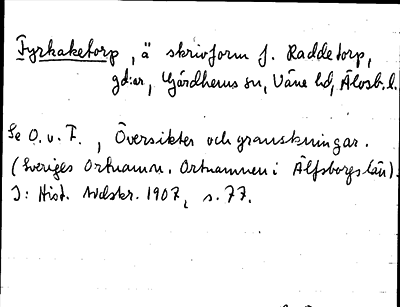 Fyrkaketorp, ä skrivform f. Raddetorp,
gd:er, Gärdhems sn, Väne hd, Älvsb. l.
Se O. v. F., Översikter och granskningar.
(Sveriges Ortnamn. Ortnamnen i Älfsborgs län).
I: Hist. tidskr. 1907, s. 77.